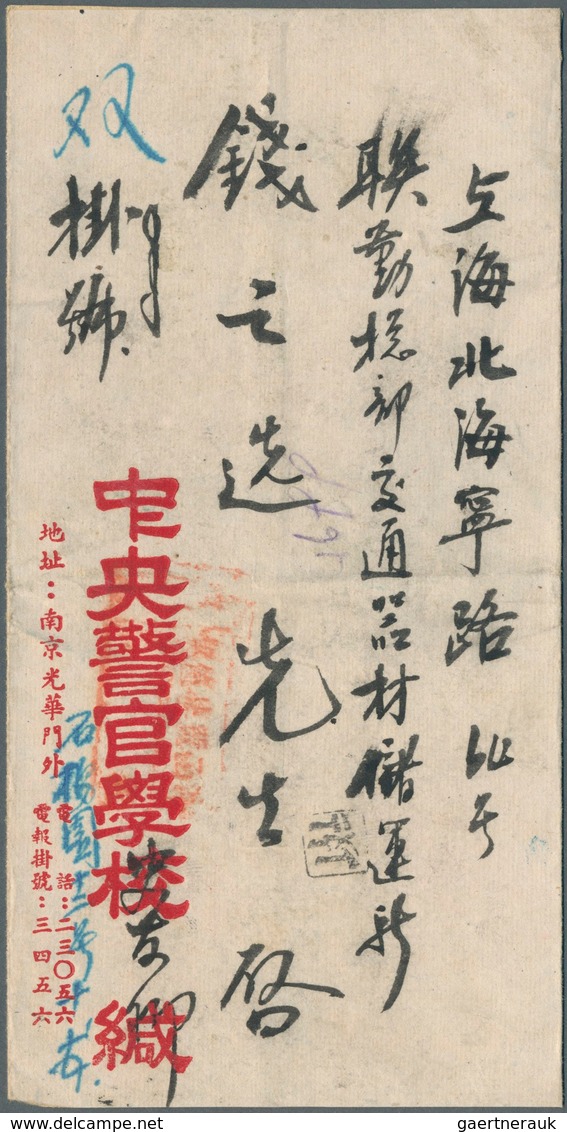 上海北海寧路
聯勤總部交通器材儲運所
錢之選先生 啓
双掛號
中央警官學校 緘
地址：南京光華門外
電話：二三〇五六
電報掛號：三四五六
gaertnerauk